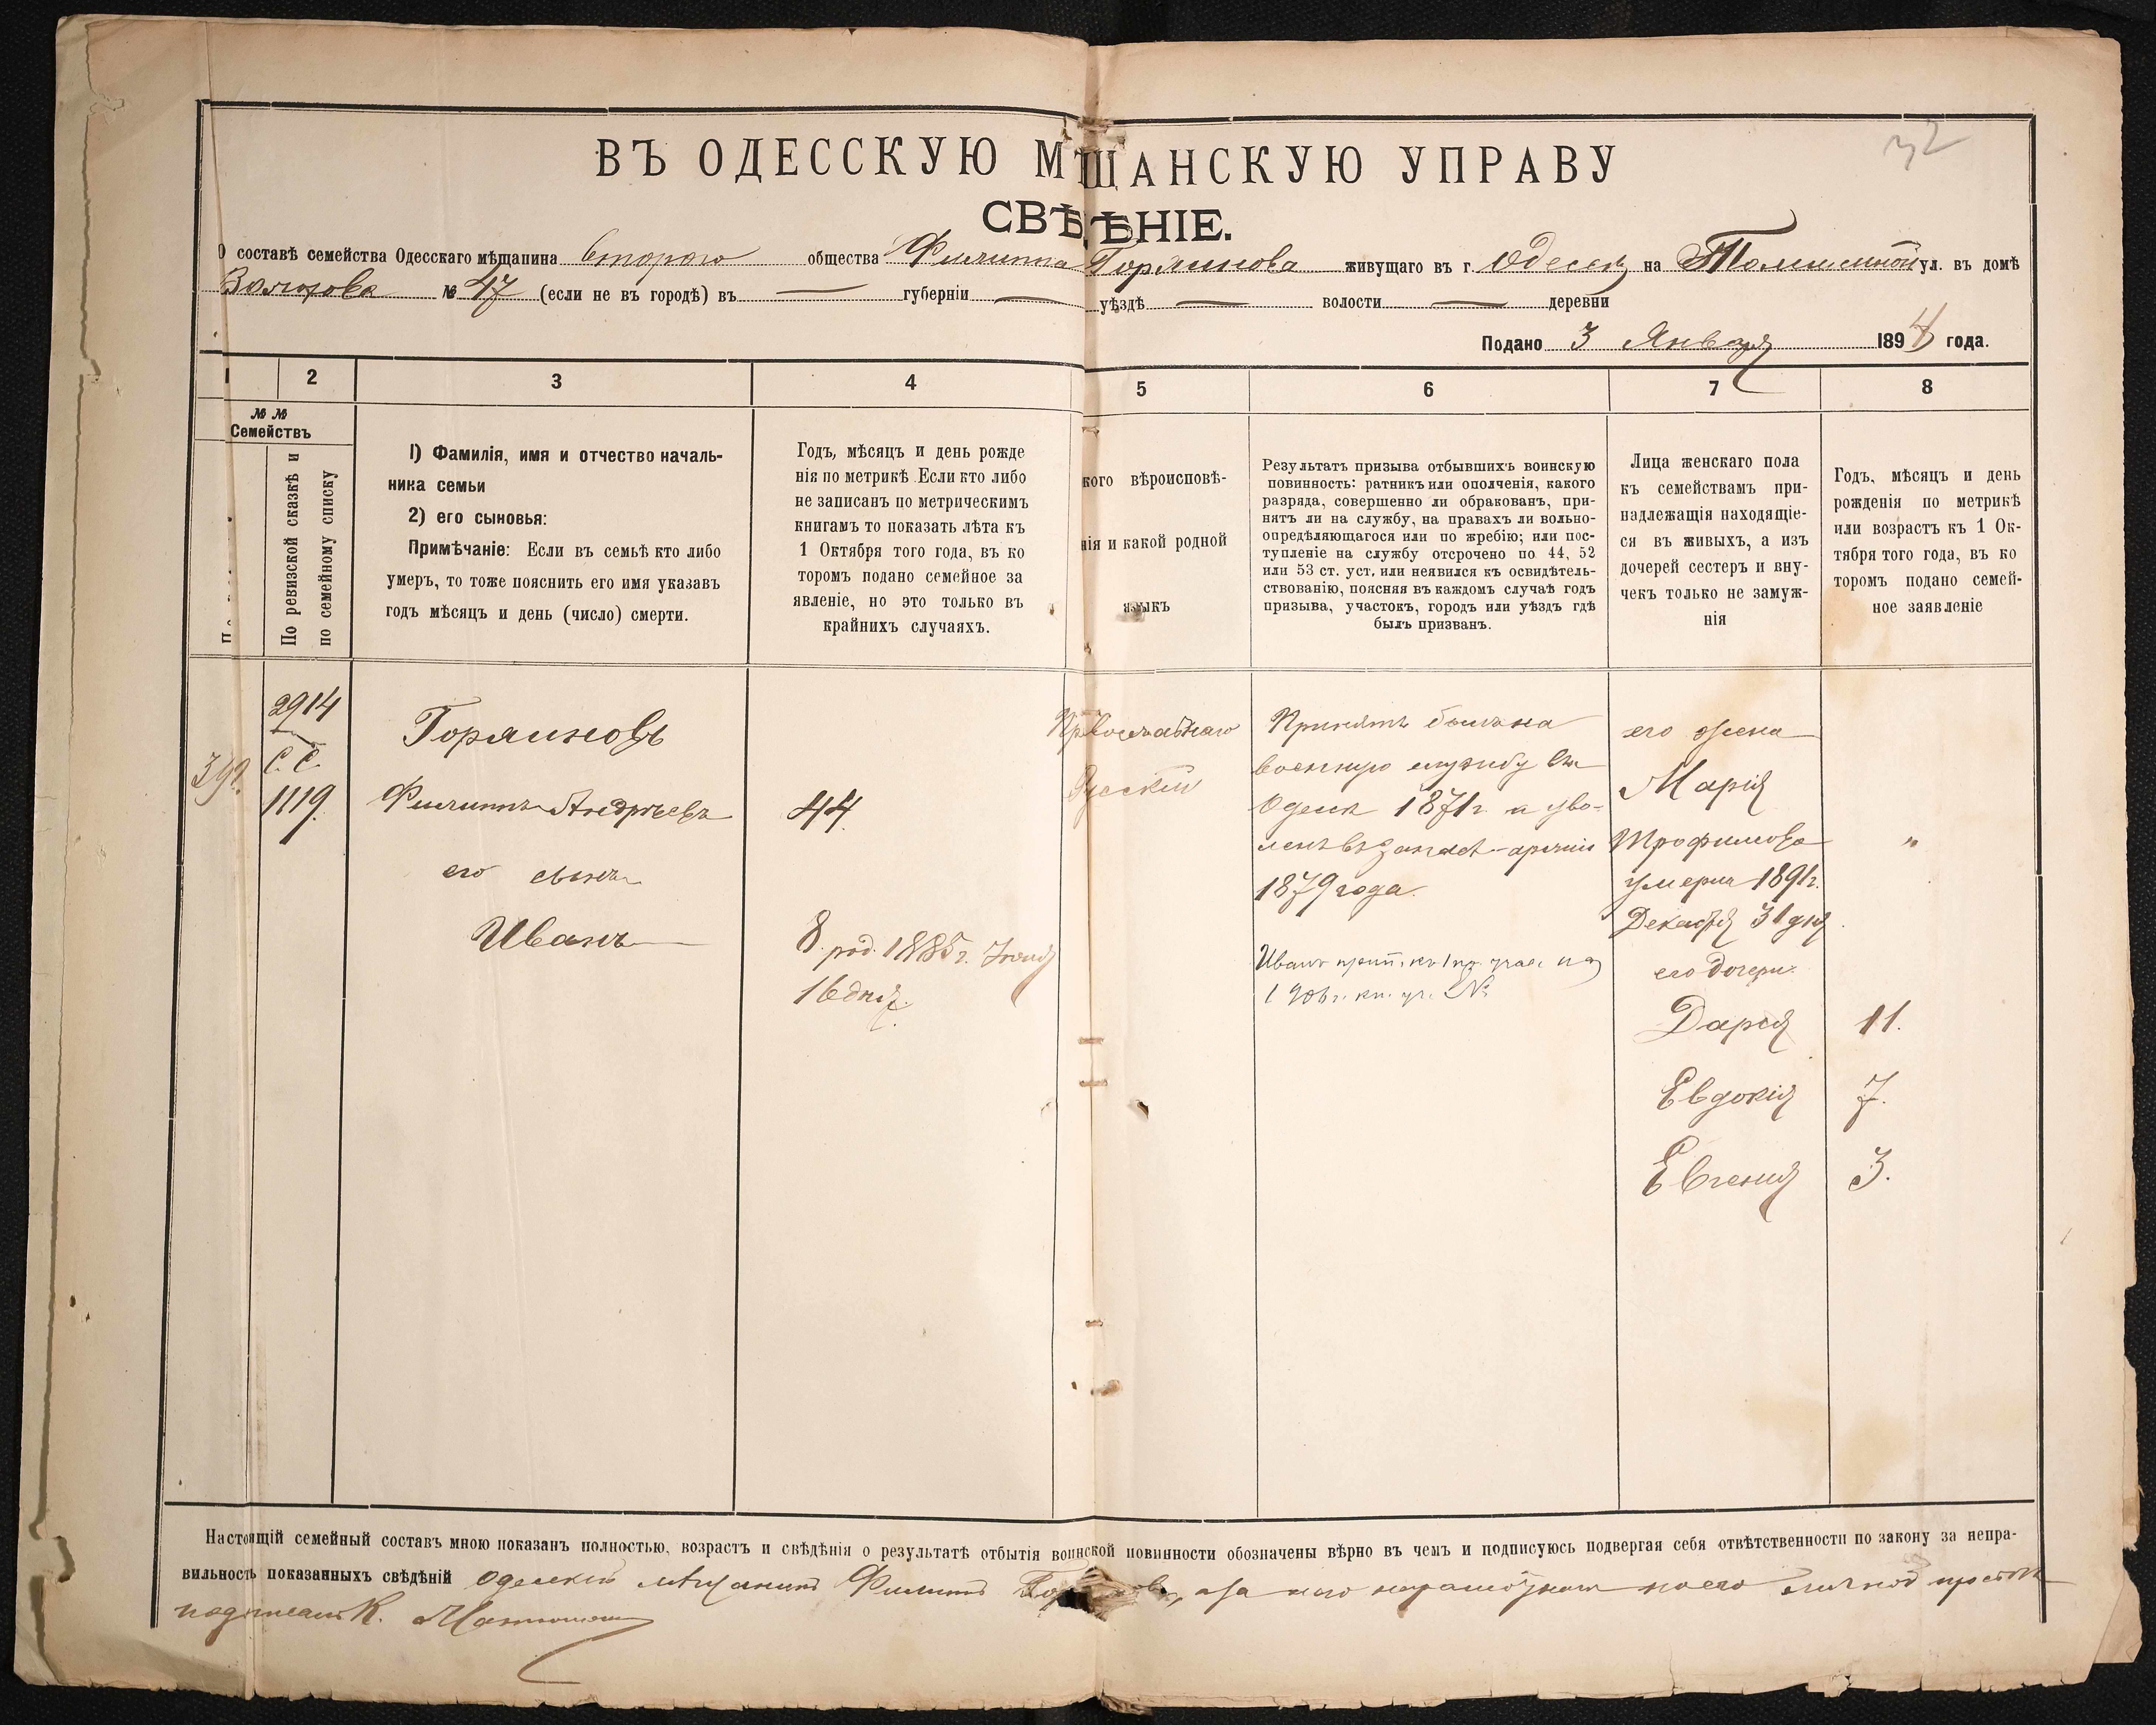 32
ВЪ ОДЕССКУЮ МѢЩАНСКУЮ УПРАВУ
СВѢДѢНІЕ.
О составѣ семейства Одесскаго мѣщанина второго общества Филиппа Горяинова живущаго въ г. Одессѣ на ул. въ домѣ
№ 47 (если не въ городѣ) въ — губерніи — уѣздѣ — волости — деревни
Подано 3 Января 1894 года.
1 2 3 4 5 6 7 8
№ № Семействъ
По ревизской сказкѣ и
по семейному списку
1) Фамилія, имя и отчество началь-
ника семьи
2) его сыновья:
Примѣчаніе: Если въ семьѣ кто либо
умеръ, то тоже пояснить его имя указавъ
годъ мѣсяцъ и день (число) смерти.
Годъ, мѣсяцъ и день рожде
нія по метрикѣ Если кто либо
не записанъ по метрическимъ
книгамъ то показать лѣта къ
1 Октября того года, въ ко
торомъ подано семейное за
явленіе, но это только въ
крайнихъ случаяхъ.
кого вѣроисповѣ-
нія и какой родной
языкъ
Результатъ призыва отбывшихъ воинскую
повинность: ратникъ или ополченія, какого
разряда, совершенно ли обракованъ, при-
нятъ ли на службу, на правахъ ли вольно-
опредѣляющагося или по жребію; или пос-
тупленіе на службу отсрочено по 44, 52
или 53 ст. уст. или неявился къ освидѣтель-
ствованію, поясняя въ каждомъ случаѣ годъ
призыва, участокъ, городъ или уѣздъ гдѣ
былъ призванъ.
Лица женскаго пола
къ семействамъ при-
надлежащія находящіе-
ся въ живыхъ, а изъ
дочерей сестеръ и вну-
чекъ только не замуж-
нія
Годъ, мѣсяцъ и день
рожденія по метрикѣ
или возрастъ къ 1 Ок-
тября того года, въ ко
торомъ подано семей-
ное заявленіе
392.
2914
С. С.
1119.
Горяиновъ
Филиппъ Андреевъ
его сынъ
Иванъ
44
8. род. 1885 г. Іюня
16 дня.
Православнаго
Русскій
Принятъ былъ на
военную службу въ
Одессѣ 1871 г. и уво-
ленъ въ запасъ арміи
1879 года.
Иванъ прип. къ 1 пр. учас. на
1906 г. №
его жена
Марія
Трофимова "
умерла 1891 г.
Декабря 31 дня
его дочери
Дарія 11.
Евдокія 7.
Евгенія 3.
Настоящій семейный составъ мною показанъ полностью, возрастъ и свѣдѣнія о результатѣ отбытія воинской повинности обозначены вѣрно въ чемъ и подписуюсь подвергая себя отвѣтственности по закону за непра-
вильность показанныхъ свѣдѣній Одесскій мѣщанинъ Филиппъ а за него неграмотнаго по его личной просьбѣ
подписалъ К.